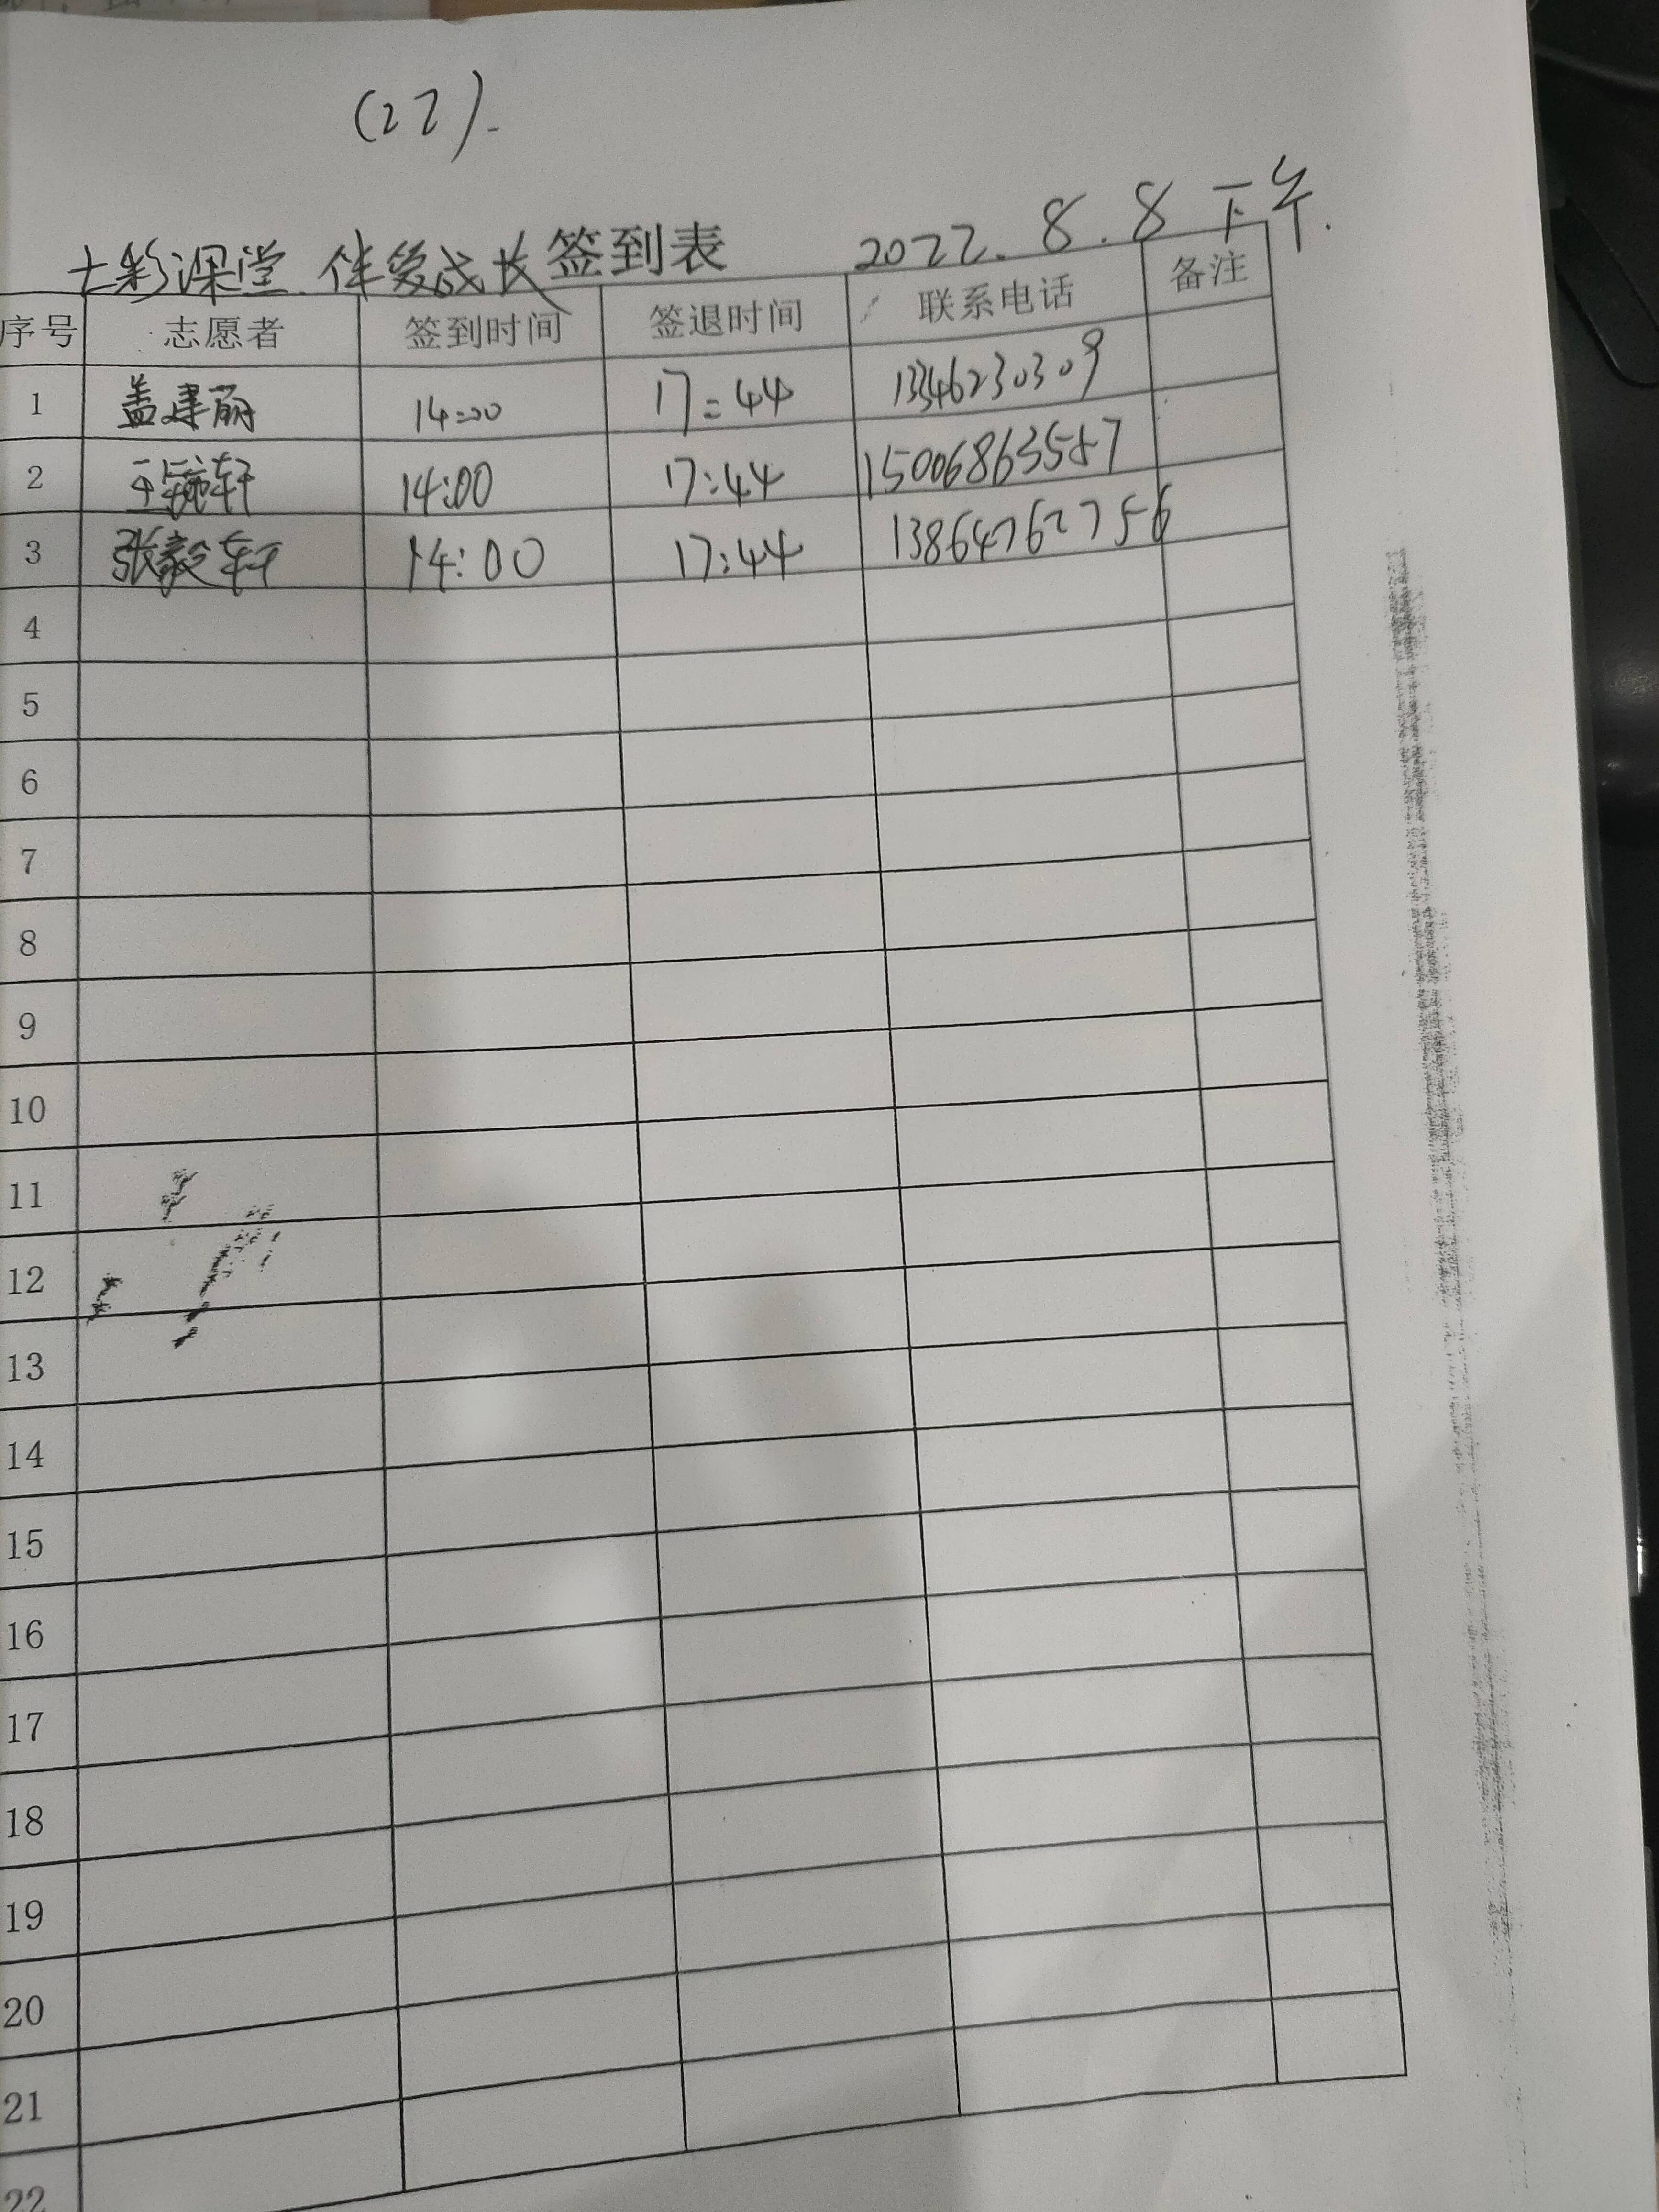 (27).
七彩课堂 伴爱成长签到表 2022.8.8 下午.
序号 志愿者 签到时间 签退时间 联系电话 备注
1 盖建丽 14:00 17:44 13346230309
2 王毓轩 14:00 17:44 15006863587
3 张毅轩 14:00 17:44 13864762756
4
5
6
7
8
9
10
11
12
13
14
15
16
17
18
19
20
21
22